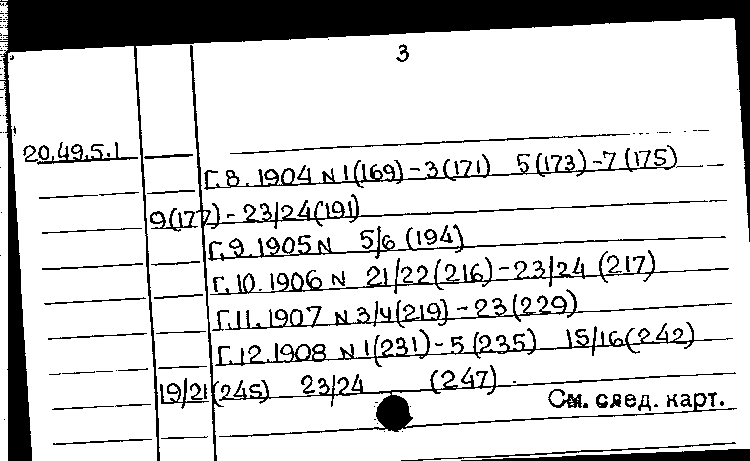 3
20.49.5.1
Г.8.1904 N 1(169)-3(171) 5(173)-7(175)
9(177)-23/24(191)
Г.9.1905 N 5/6 (194)
Г.10.1906 N 21/22(216)-23/24 (217)
Г.11.1907 N 3/4(219)-23(229)
Г.12.1908 N 1(231)-5(235) 15/16(242)
19/21(245) 23/24 (247)
См. след. карт.